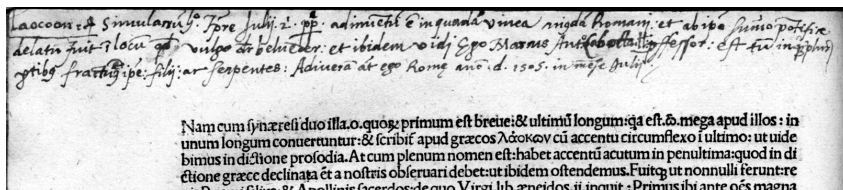 Laocoon: et Simulacrum hoc: Tpre Julij. 2. pp: adinuentum e in quadam vinea magna Romam: et ab ipso sumo potifice
delatum fuit i locu qd vulgo dr belueder: et ibidem vidi Ego Marcus Ant. Sabellicus pfessor: est tn in plurib
ptibus fractus ipe: filij: ac serpentes: Adiveram at ego Romę ano. d. 1505. in mese Julij
Nam cum synæresi duo illa.o.quoꝝ primum est breue:& ultimũ longum:q̃a est.ō.mega apud illos: in
unum longum conuertuntur:& scribif apud græcos λάοκων cũ accentu circumflexo i ultimo: ut uide
bimus in dictione prosodia. At cum plenum nomen est:habet accentũ acutum in penultima:quod in di
ctione græce declinata ẽt a nostris obseruari debet:ut ibidem ostendemus.Fuitq; ut nonnulli ferunt:re
filius:& Apollinis sacerdos:de quo Virgi.lib.æneidos.ii.inquit: Primus ibi ante oẽs magna